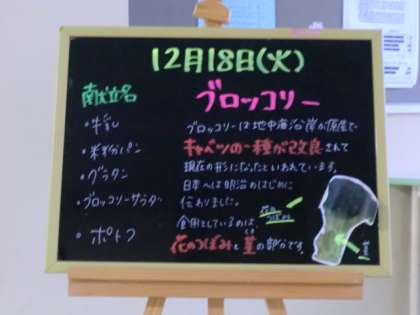 12月18日(火)
献立名
・牛乳
・米粉パン
・グラタン
・ブロッコリーサラダ
・ポトフ
ブロッコリー
ブロッコリーは地中海沿岸が原産で
キャベツの一種が改良されて
現在の形になったといわれています。
日本へは明治のはじめに
伝わりました。
食用としているのは、
花のつぼみと茎の部分です。
花の
つぼみ
茎